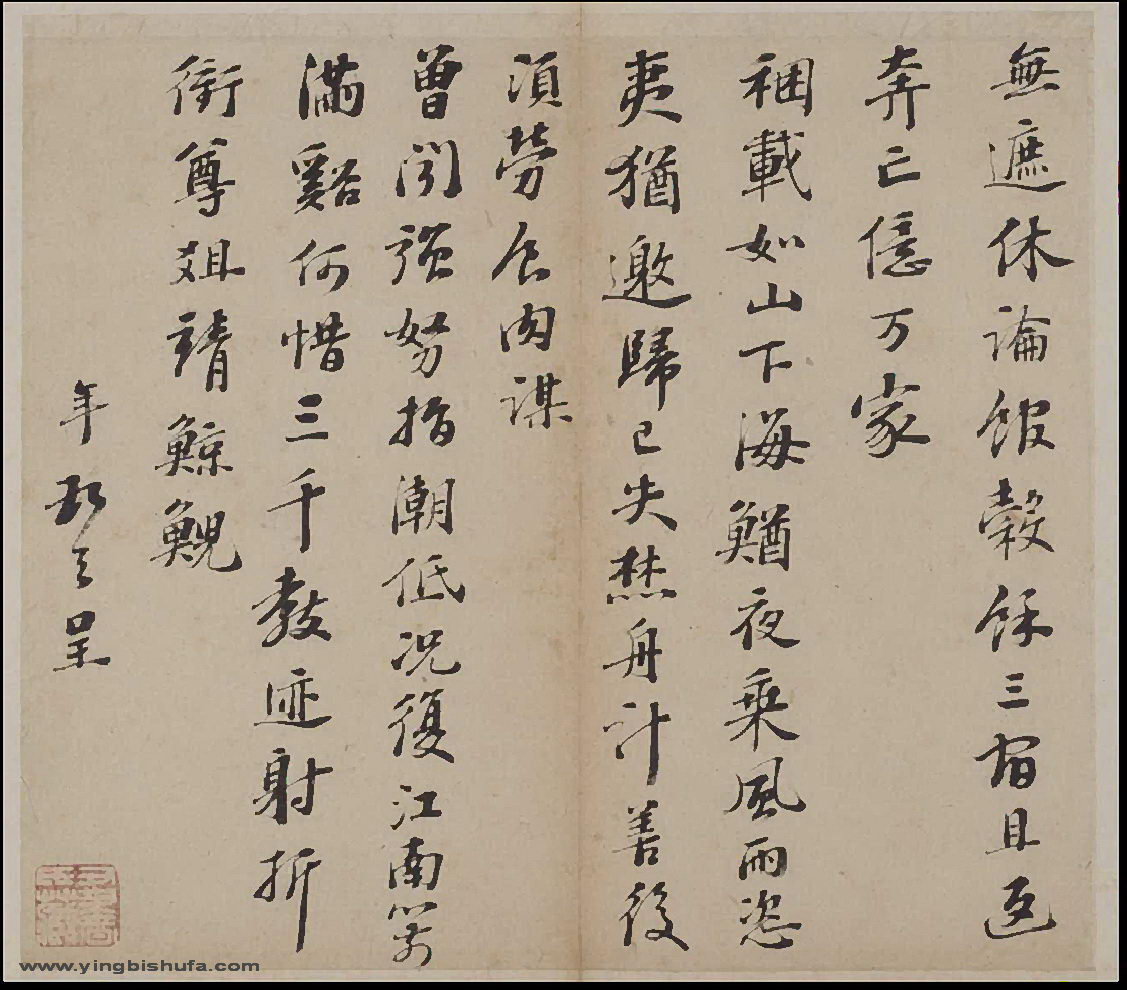 無遮休論館穀餘三宿且返
奔亡億万家
稛載如山下海鰌夜乗風雨恣
夷猶邀歸已失焚舟計善後
須勞侌内謀
曽聞強弩指潮低况復江南箭
滿谿何惜三千教迹射折
衝尊俎請鯨鯢
年
呈
www.yingbishufa.com